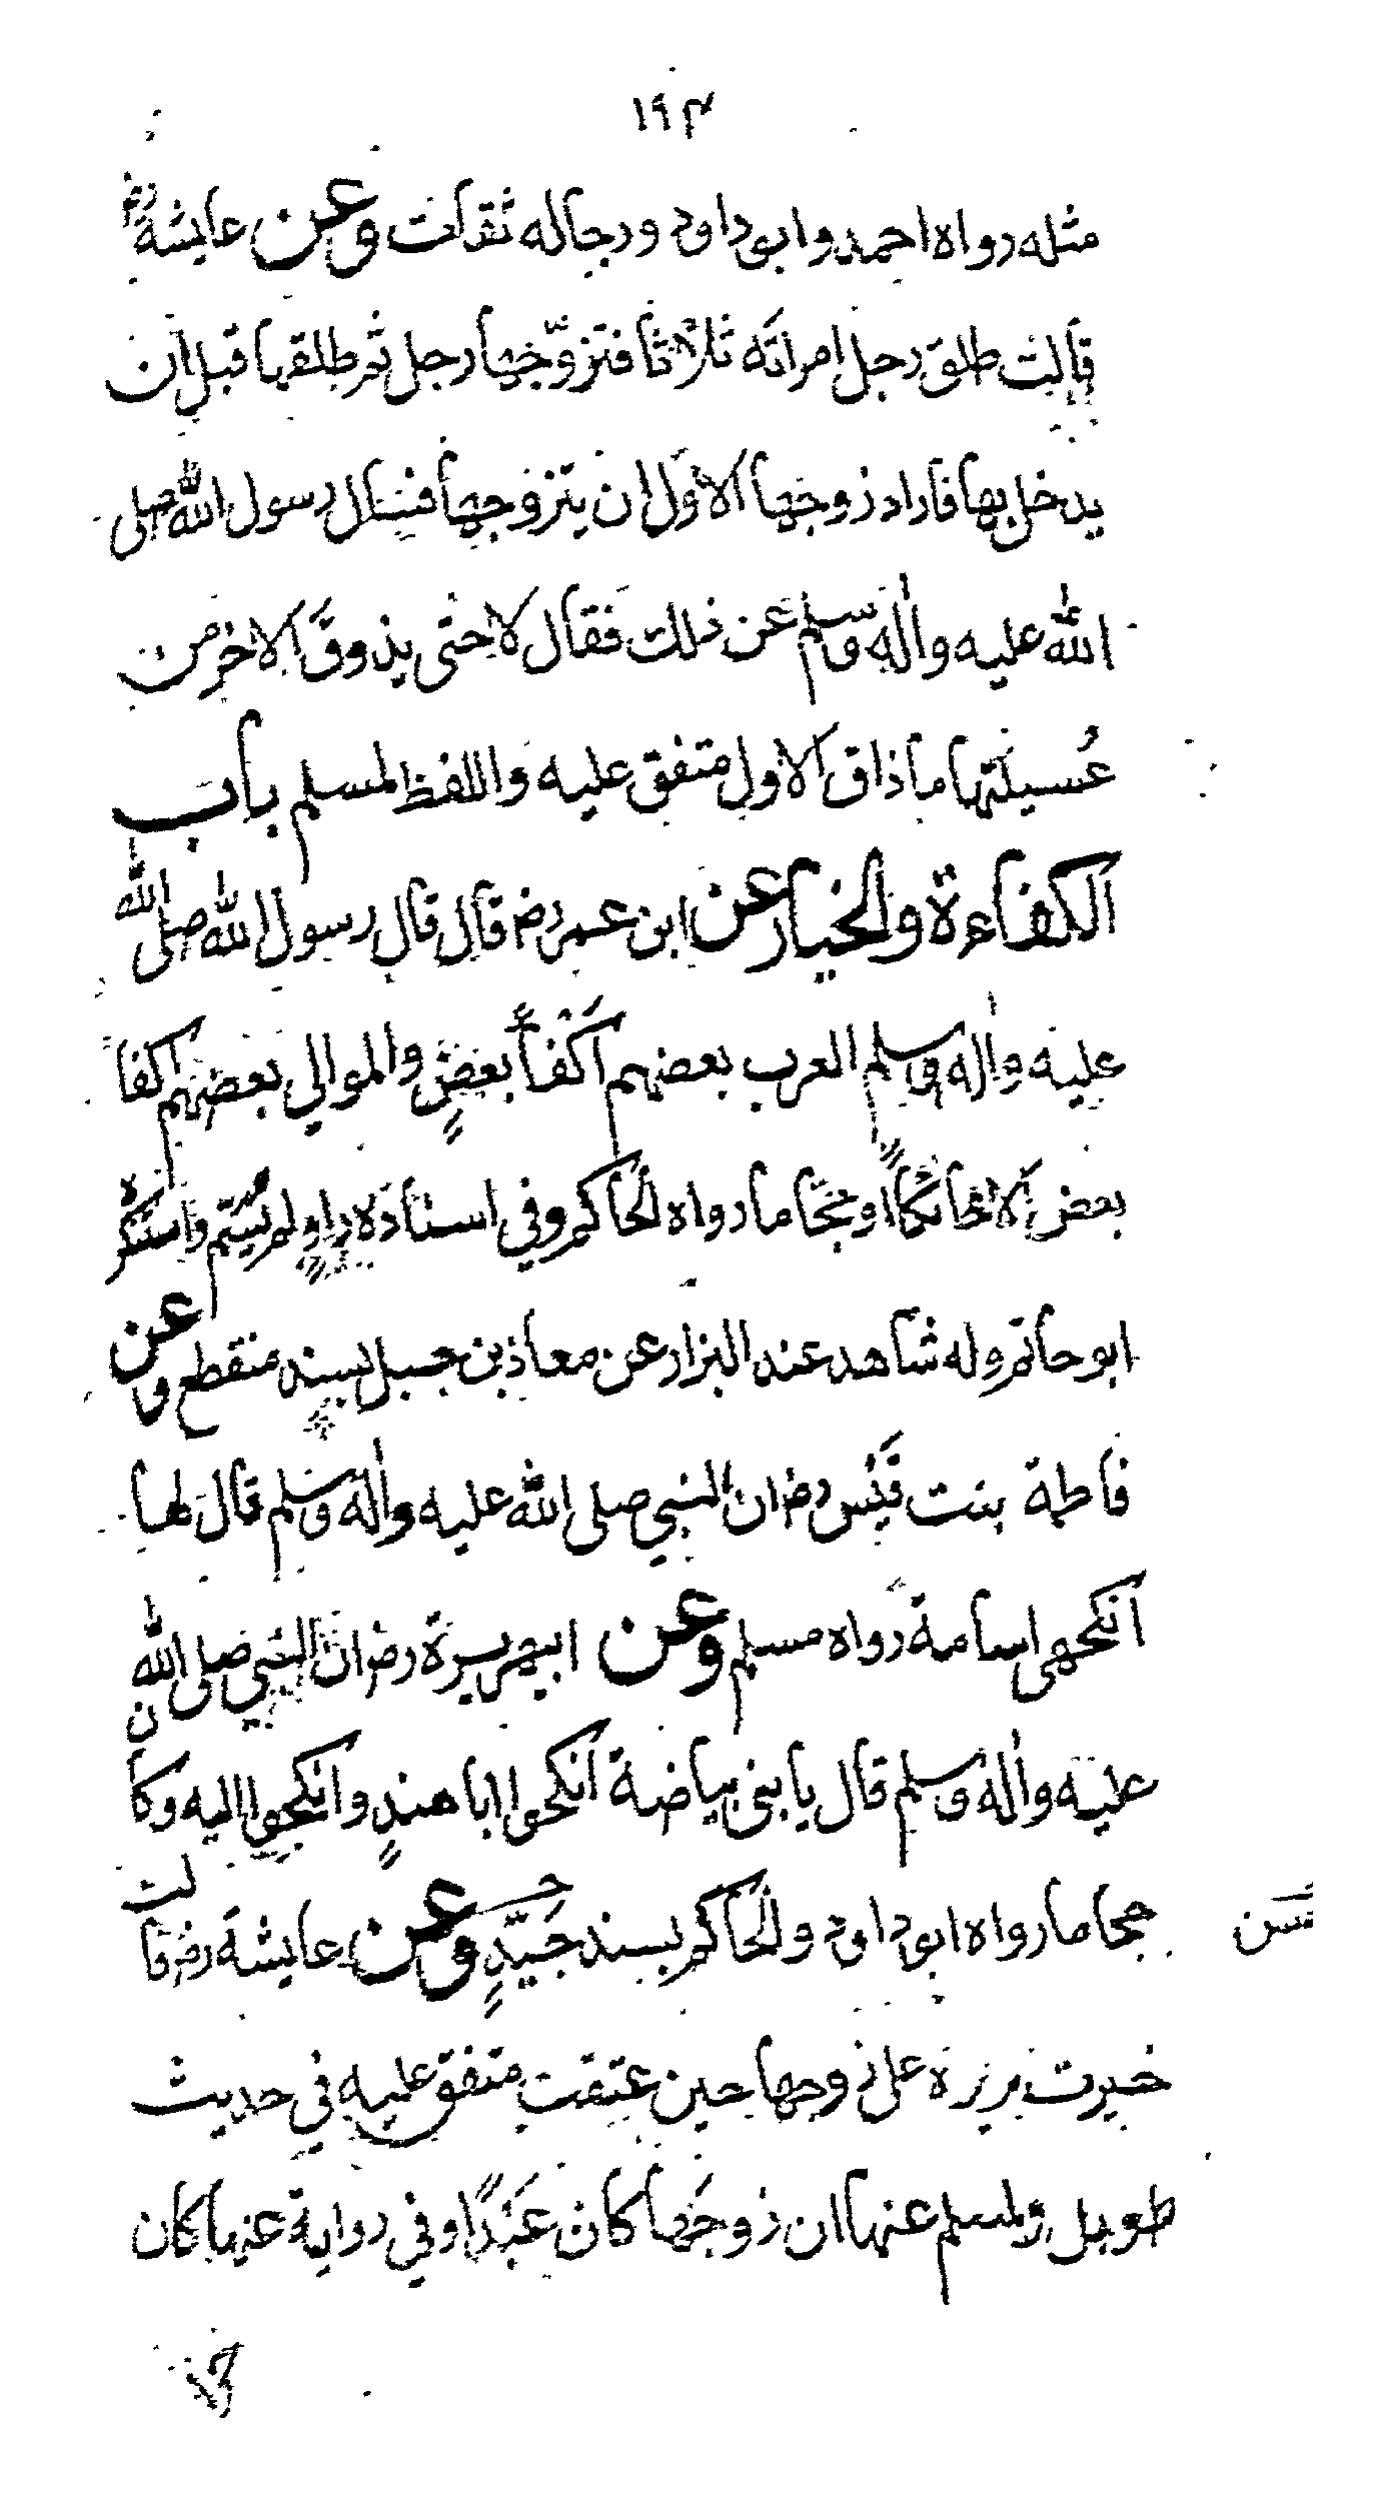 ١٩٣
مثله رواه احمد وابو داود ورجاله ثقات وعن عايشة رض
قالت طلق رجل امراته ثلاثا فتزوّجها رجل ثم طلقها قبل ان
يدخل بها فاراد زوجها الاوّل ان يتزوجها فسئل رسول الله صلى
الله عليه واله وسلم عن ذلك فقال لا حتى يذوق الاخر من
عُسيلتها ما ذاق الاول متفق عليه واللفظ لمسلم باب
الكفاءة والخيار عن ابن عمر رض قال قال رسول الله صلى الله
عليه واله وسلم العرب بعضهم اكْفاءُ بعضٍ والموالي بعضهم اكفا
بعض الا حائكًا او حجاما رواه الحاكم وفي اسناده راوٍ لم يسم واستنكره
ابو حاتم وله شاهد عند البزار عن معاذ بن جبل بسند منقطع وعن
فاطمة بنت قَيْس رض ان النبي صلى الله عليه واله وسلم قال لها
انكحى اسامة رواه مسلم وعن ابيهريرة رض ان النبي صلى الله
عليه واله وسلم قال يا بنى بياضة انكحوا ابا هندٍ وانكحوا اليه وكان
حجاما رواه ابو داود والحاكم بسند جَيّدٍ وعن عايشة رض قالت
حسن
خيرت بريرة على زوجها حين عتقت متفق عليه في حديث
طويل ولمسلم عنها ان زوجَها كان عَبْدًا وفي رواية عنها كان